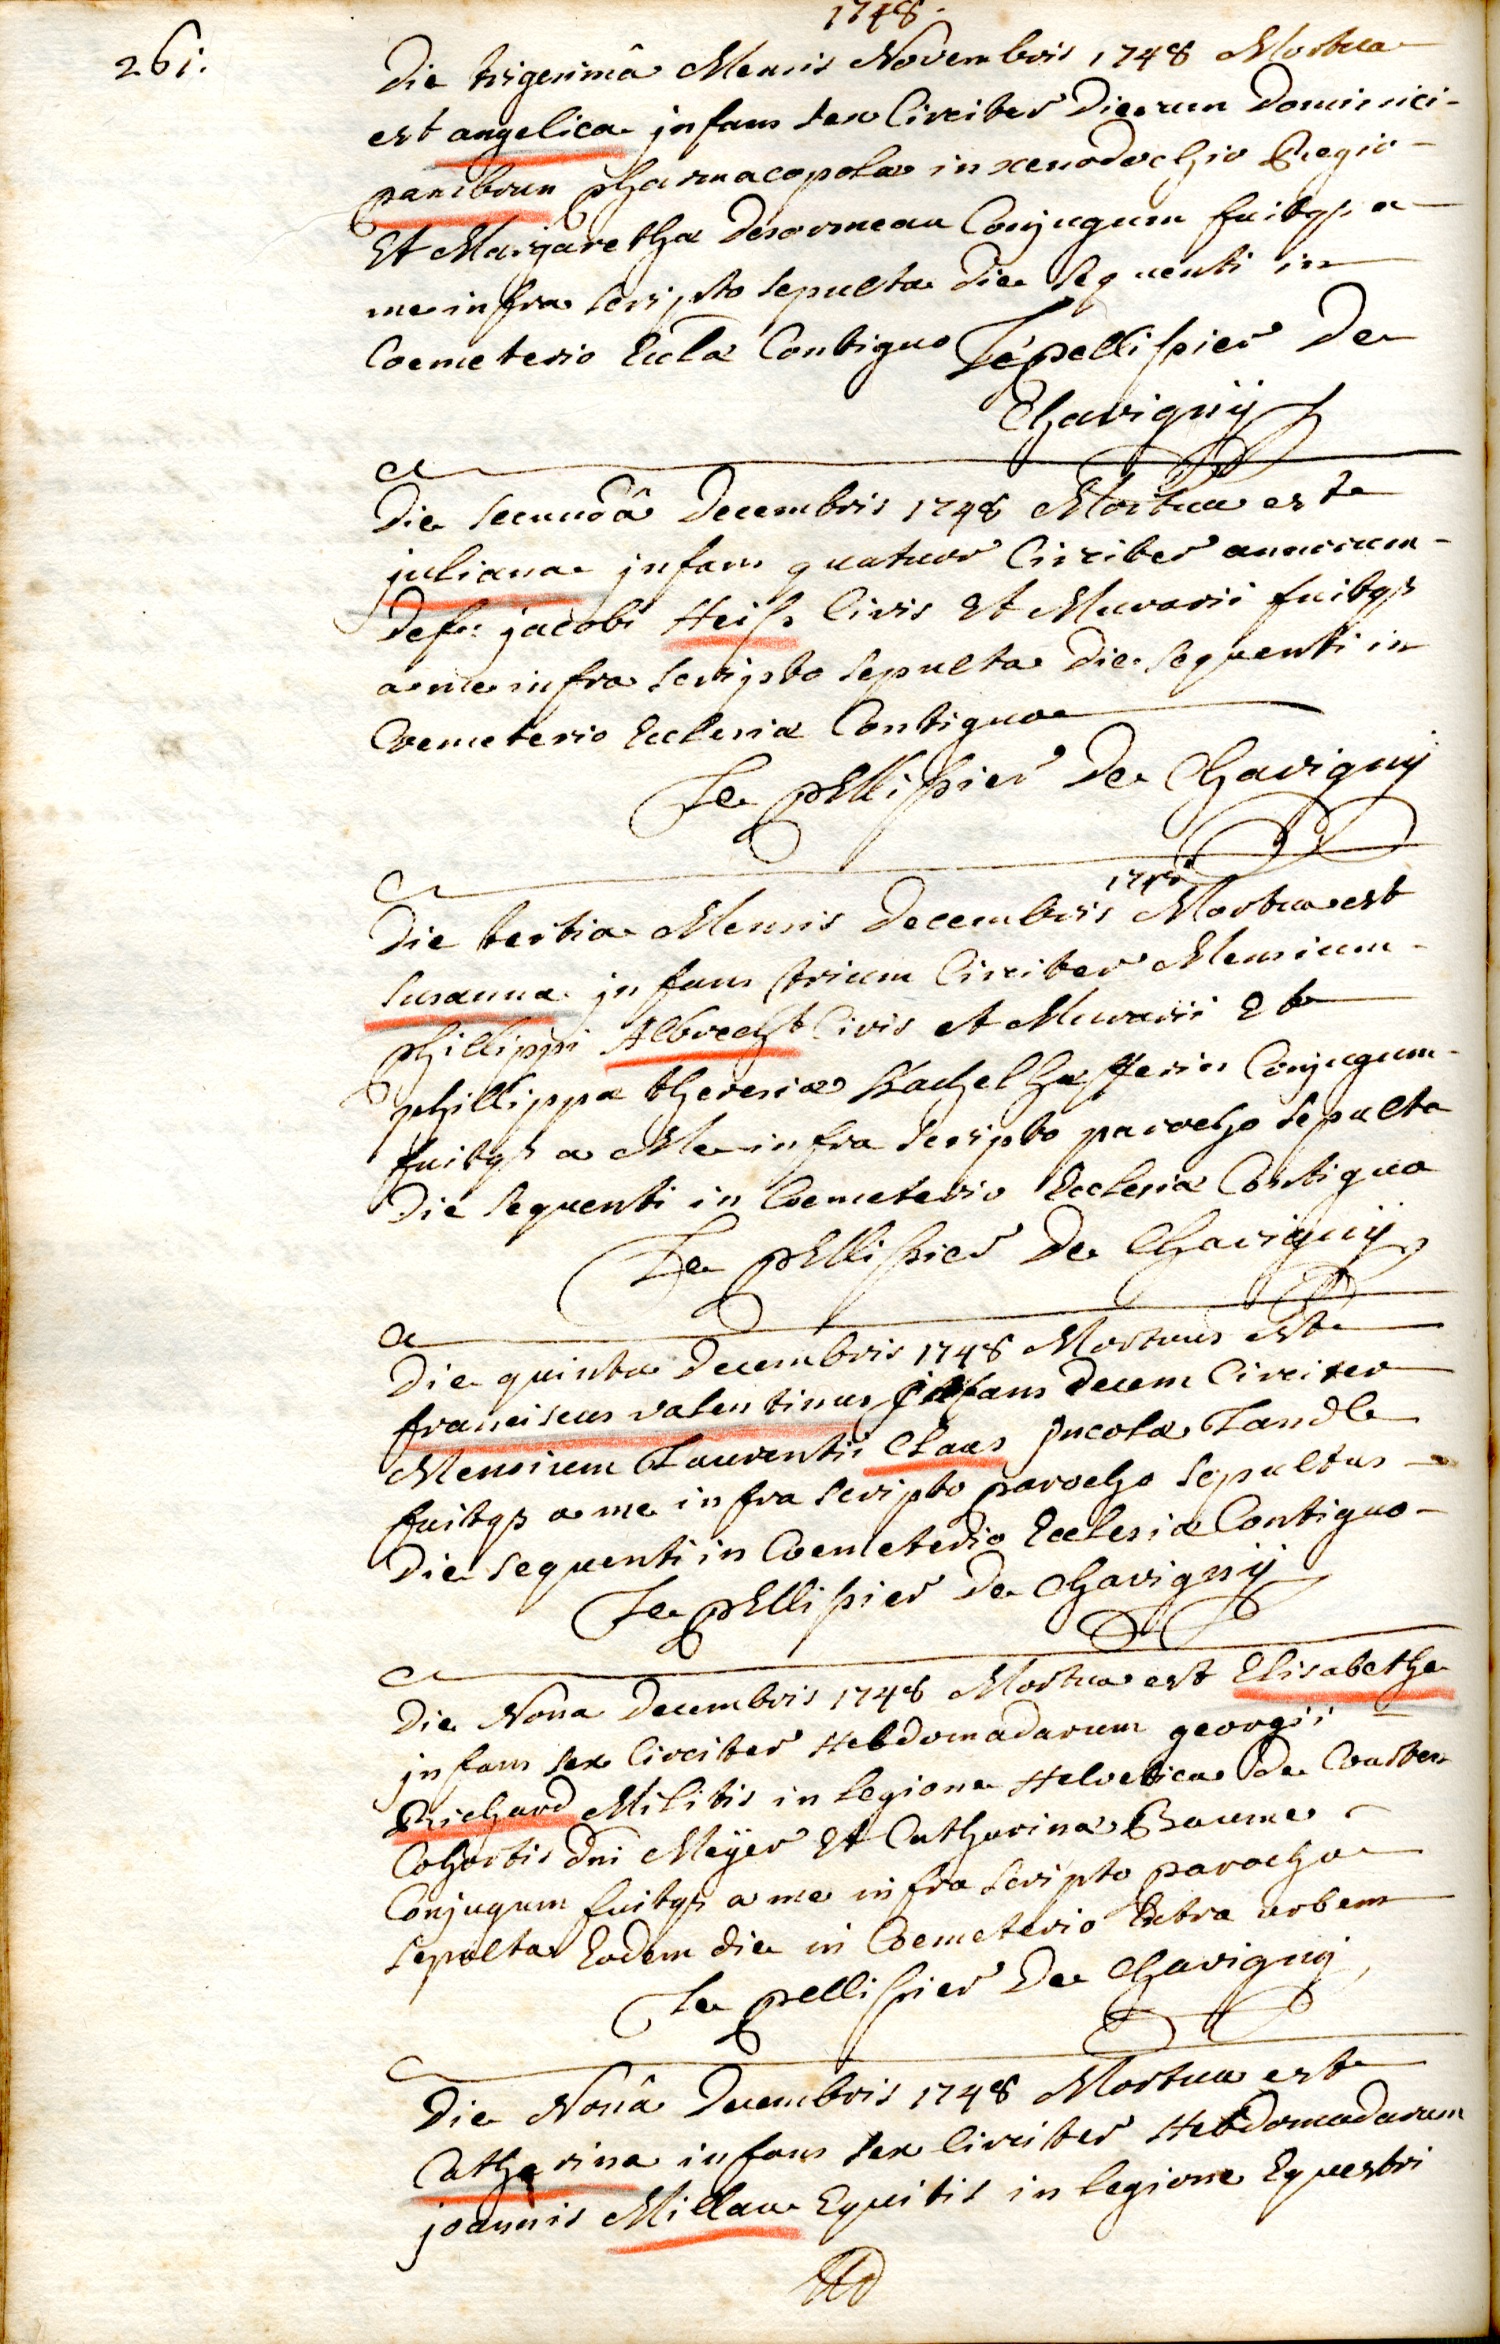 1748.
261.
Die trigesimâ Mensis Novembris 1748 Mortua
est angelica infans sex Circiter Dierum Dominici
pambrun pharmacopolæ in xenodochio Regio
Et Margarethæ Desormeau Conjugum fuitqs a
me infra scripto sepulta die sequenti in
Coemeterio Eccla Contiguo Le pellissier De
Chavignÿ
Die secundâ Decembris 1748 Mortua est
juliana infans quatuor Circiter annorum
Def: jacobi Heiss Civis Et Murarii fuitqs
a me infra scripto sepulta die sequenti in
Coemeterio Ecclesiæ Contiguo
Le pellissier De Chavigny
Die tertia Mensis Decembris 1748 Mortua est
Susanna infans trium Circiter Mensium
phillippi Albrecht Civis et Murarii Et
phillippæ theresiæ Kachelhafferin Conjugum
fuitqs a Me infra scripto parocho sepulta
Die sequenti in Coemeterio Ecclesiæ Contiguo
Le pellissier De Chavignÿ
Die quinta Decembris 1748 Mortuus est
franciscus valentinus infans decem Circiter
Mensium Laurentii Claus Incolæ Landle
fuitqs a me infra scripto parocho sepultus
Die sequenti in Coemeterio Ecclesiæ Contiguo
Le pellissier De Chavignÿ
Die Nona Decembris 1748 Mortua est Elisabetha
infans sex Circiter Hebdomadarum georgii
Richard Militis in legione Helvetica De
Cohortis dni Meÿer Et Catharinæ Baume
Conjugum fuitqs a me infra scripto parocho
sepulta Eodem die in Coemeterio Extra urbem
Le pellissier De Chavigny
Die Nonâ Decembris 1748 Mortua est
Catharina infans sex Circiter Hebdomadarum
joannis Millau Equitis in legione Equestri